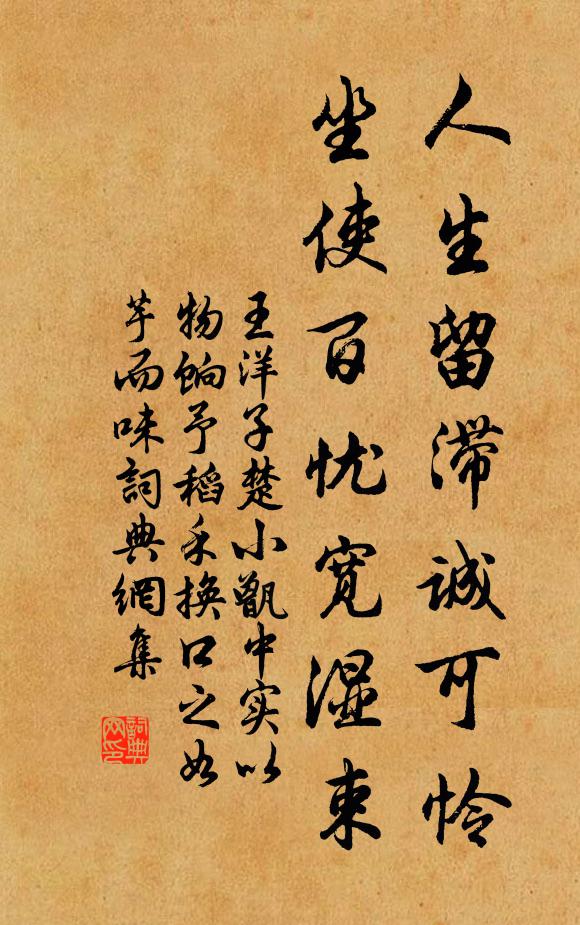 人生留滞诚可怜
坐使百忧宽湿束
王洋子楚小甑中实以
物饷予稻禾换口之如
芋而味词典網集
詞典網印